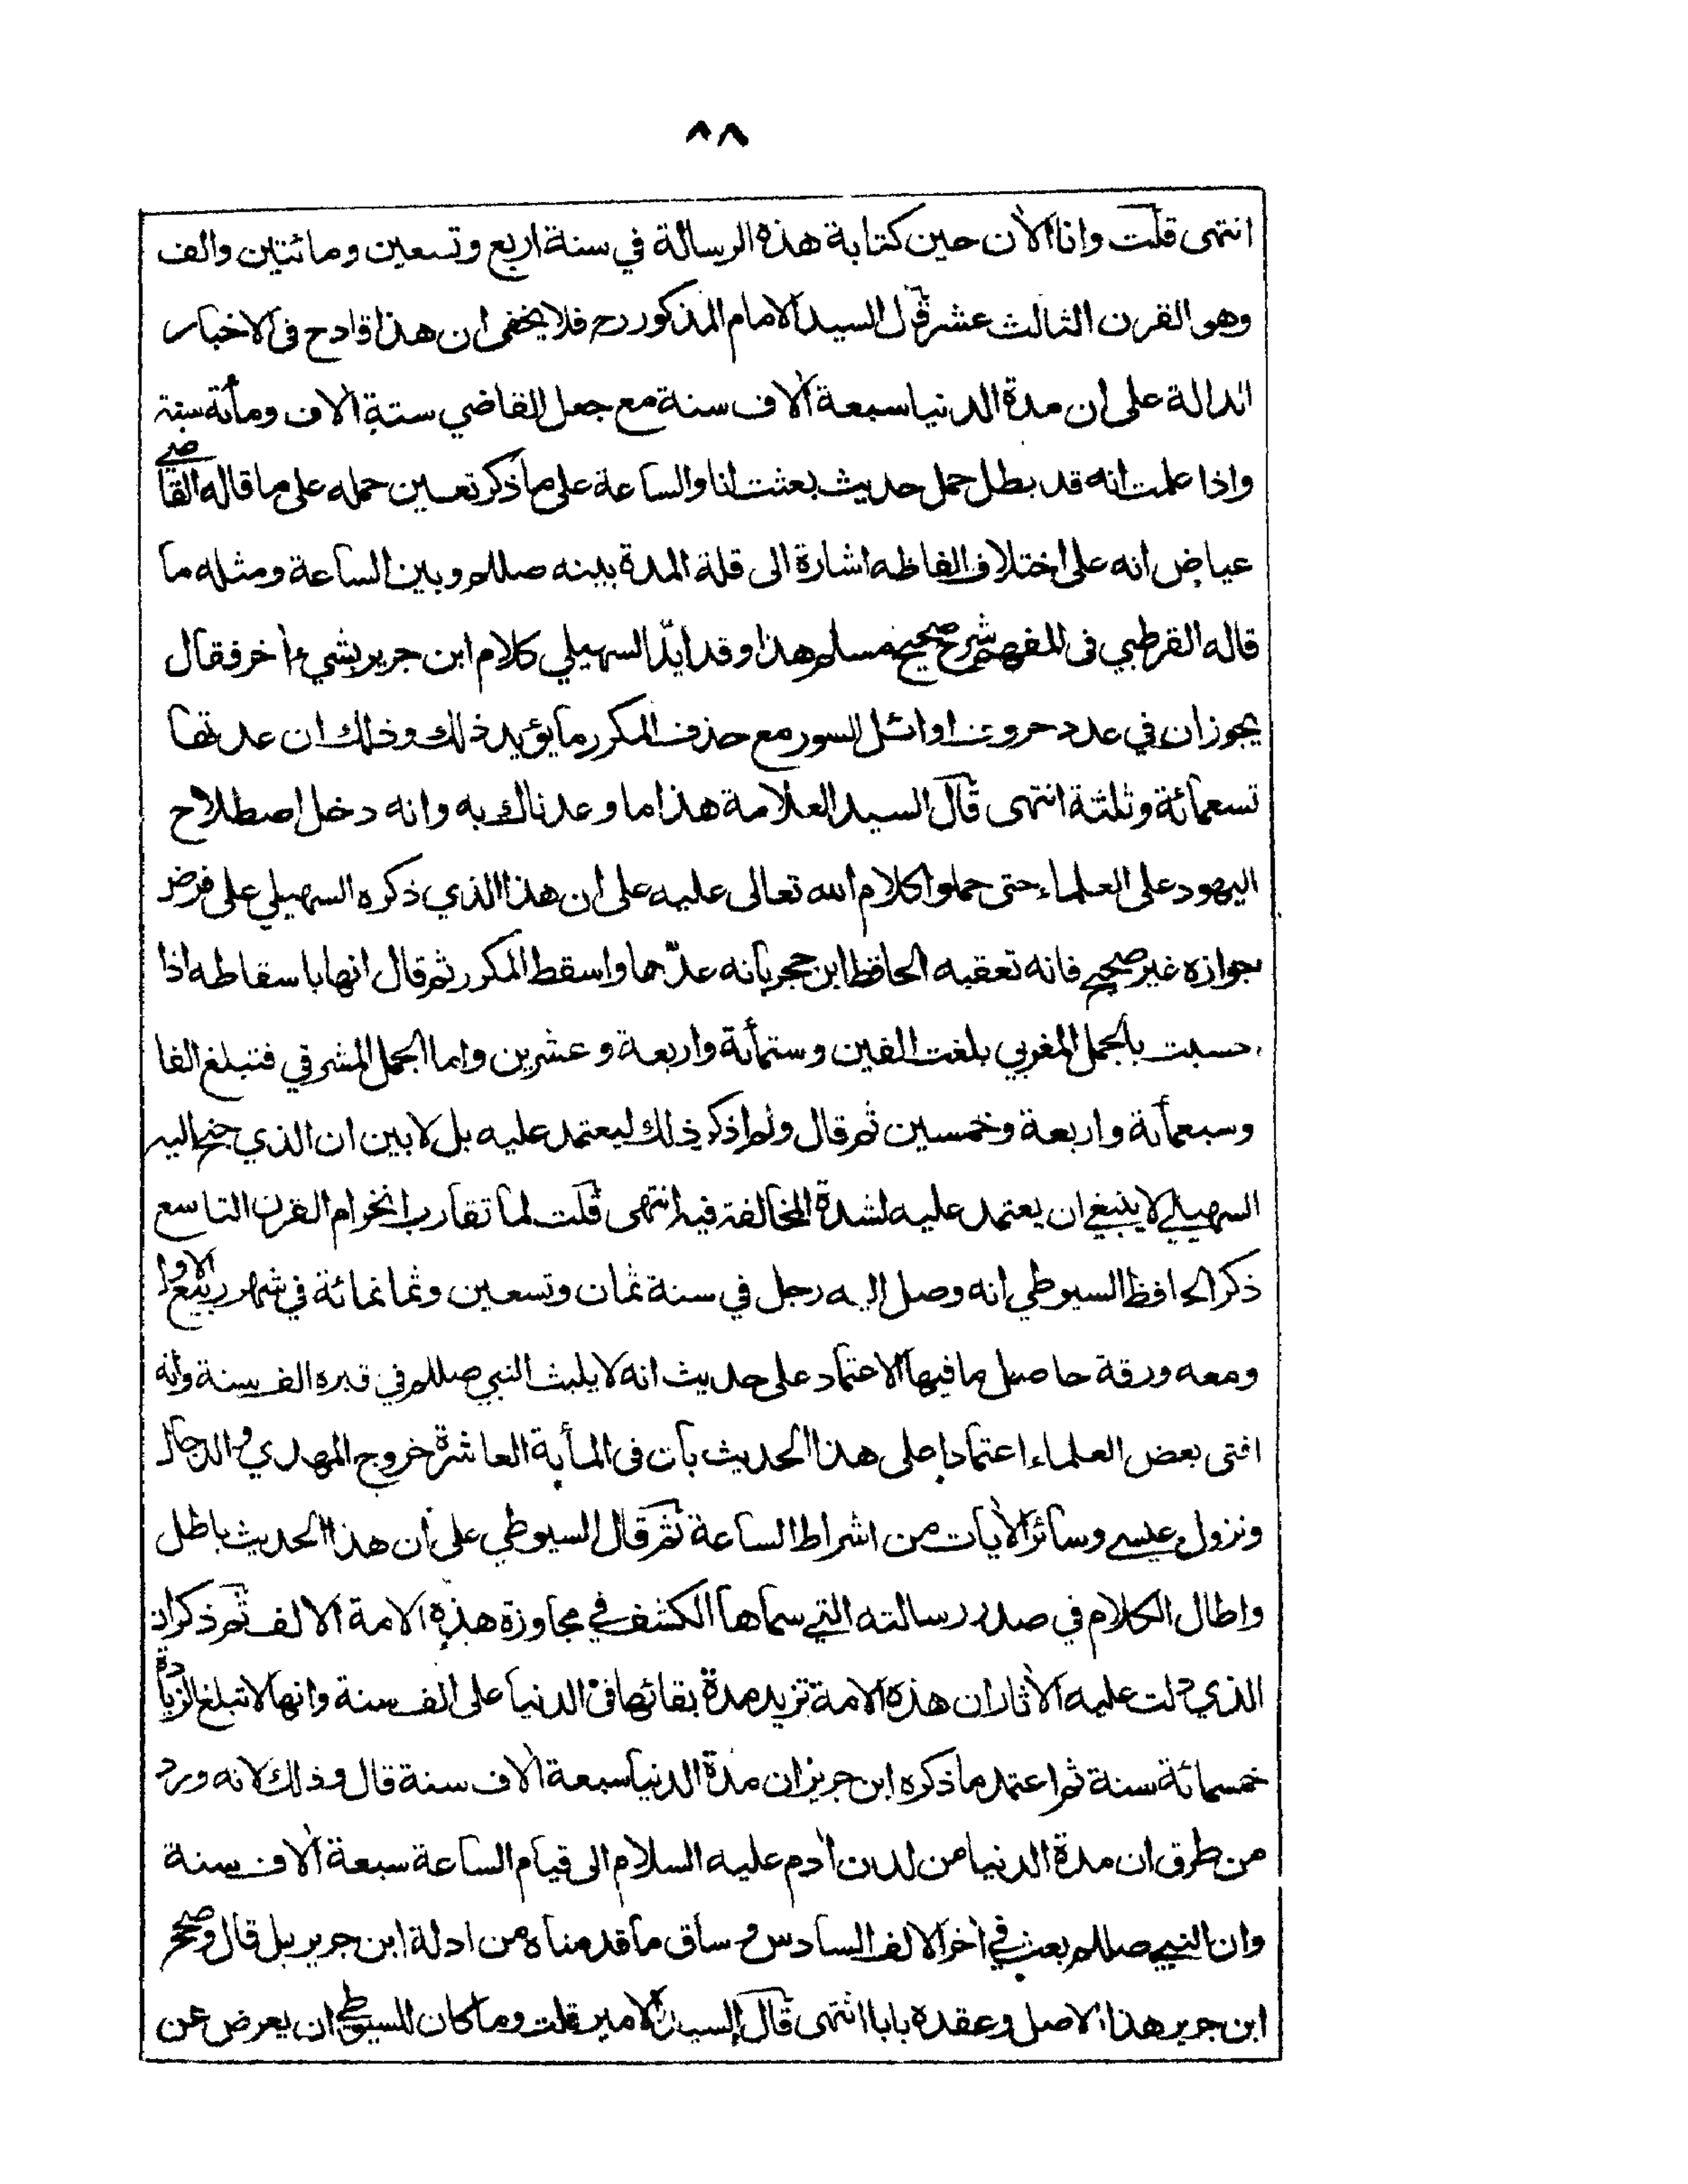 ٨٨
انتهى قلت وانا الآن حين كتابة هذه الرسالة في سنة اربع وتسعين ومائتين والف
وهو القرن الثالث عشر قال السيد الامام المذكور رح فلا يخفى ان هذا قادح فى الاخبار
الدالة على ان مدة الدنيا سبعة آلاف سنة مع جعل الماضي ستة آلاف ومأئة سنة
واذا علمت انه قد بطل حمل حديث بعثت انا والساعة على ما ذكر تعين حمله على ما قاله القاضي
عياض انه على اختلاف الفاظه اشارة الى قلة المدة بينه صللم وبين الساعة ومثله ما
قاله القرطبي فى المفهم شرح صحيح مسلم هذا وقد ايّد السهيلي كلام ابن جرير بشيء آخر فقال
يجوز ان في عدد حروف اوائل السور مع حذف المكرر ما يؤيد ذلك وذلك ان عدتها
تسعمائة وثلثة انتهى قال السيد العلامة هذا ما وعدناك به وانه دخل اصطلاح
اليهود على العلماء حتى حملوا كلام الله تعالى عليه على ان هذا الذي ذكره السهيلي على فرض
جوازه غير صحيح فانه تعقبه الحافظ ابن حجر بأنه عدّها واسقط المكرر ثم قال انها باسقاطه اذا
حسبت بالجمل المغربي بلغت الفين وستمأئة واربعة وعشرين واما الجمل المشرقي فتبلغ الفا
وسبعمأئة واربعة وخمسين ثم قال ولم اذكر ذلك ليعتمد عليه بل لابين ان الذي جنح اليه
السهيلي لا ينبغي ان يعتمد عليه لشدة المخالفة فيه انتهى قلت لما تقارب انخرام القرن التاسع
ذكر الحافظ السيوطي انه وصل اليه رجل في سنة ثمان وتسعين وثمانمائة في شهر ربيع الاول
ومعه ورقة حاصل ما فيها الاعتماد على حديث انه لا يلبث النبي صللم في قبره الف سنة وانه
افتى بعض العلماء اعتمادا على هذا الحديث بأن فى المأية العاشرة خروج المهدي والدجال
ونزول عيسى وسائر الآيات من اشراط الساعة ثم قال السيوطي على أن هذا الحديث باطل
واطال الكلام في صدر رسالته التي سماها الكشف في مجاوزة هذه الامة الالف ثم ذكر ان
الذي دلت عليه الآثار ان هذه الامة تزيد مدة بقائها فى الدنيا على الف سنة وانها لا تبلغ الزيادة
خمسمائة سنة ثم اعتمد ما ذكره ابن جرير ان مدة الدنيا سبعة آلاف سنة قال وذلك لانه ورد
من طرق ان مدة الدنيا من لدن آدم عليه السلام الى قيام الساعة سبعة آلاف سنة
وان النبي صللم بعث في آخر الالف السادس وساق ما قدمناه من ادلة ابن جرير بل قال وصحح
ابن جرير هذا الاصل وعقده بابا انتهى قال السيد الامير قلت وما كان للسيوطي ان يعرض عن